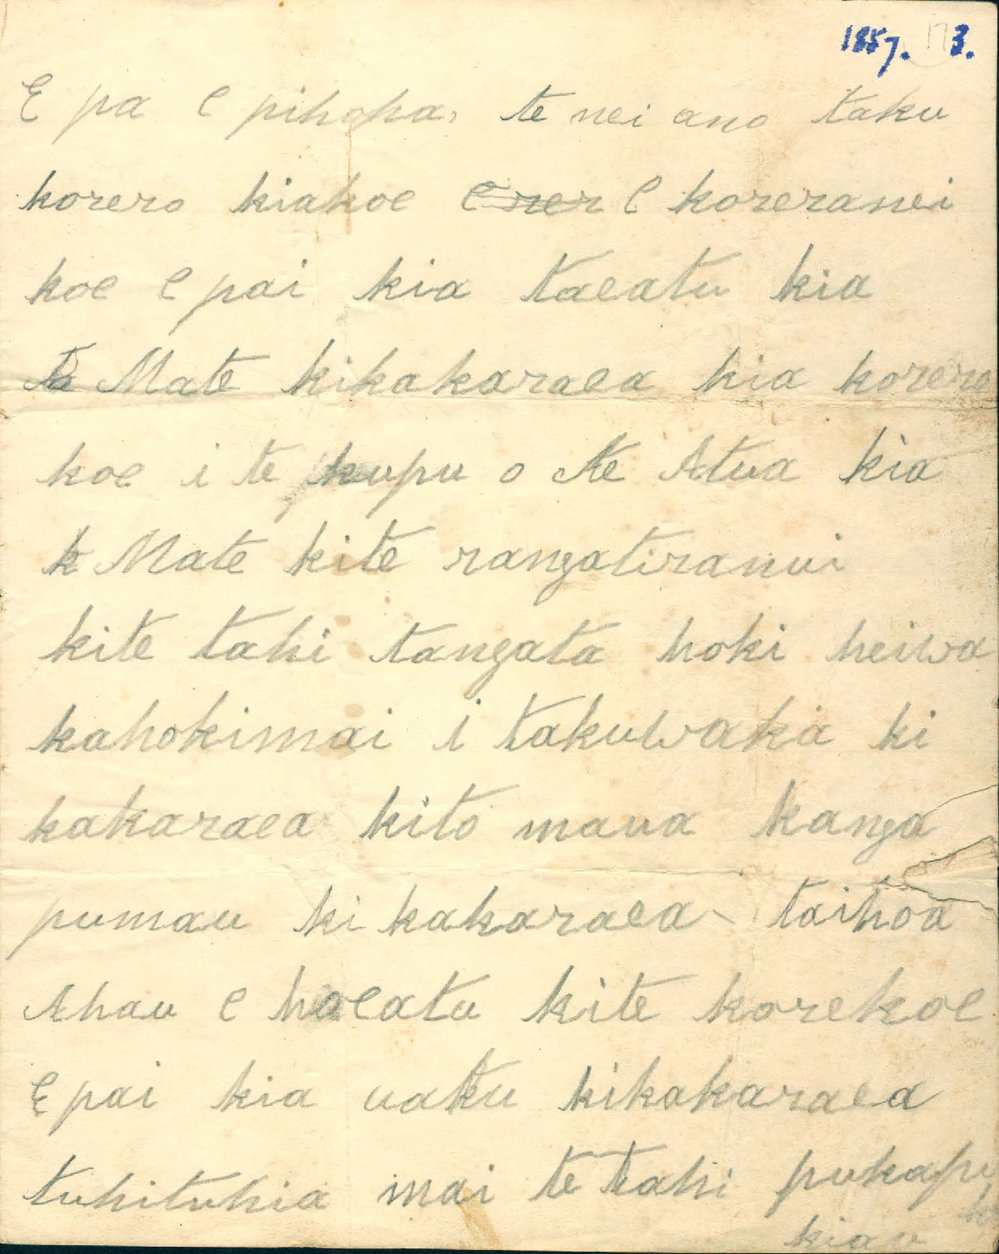 1857. 173.
E pa e pihopa, te nei ano taku
korero kiakoe e rer e koreranei
koe e pai kia taeatu kia
te Mate kikakaraea kia korero
koe i te kupu o te Atua kia
k Mate kite rangatiranui
kite tahi tangata hoki heiwa
kahokimai i takuwaka ki
kakaraea kito maua kanga
pumau ki kakaraea taihoa
Ahau e hoeatu kite korekoe
E pai kia uaku kikakaraea
tuhituhia mai te tahi pukapu
kiau